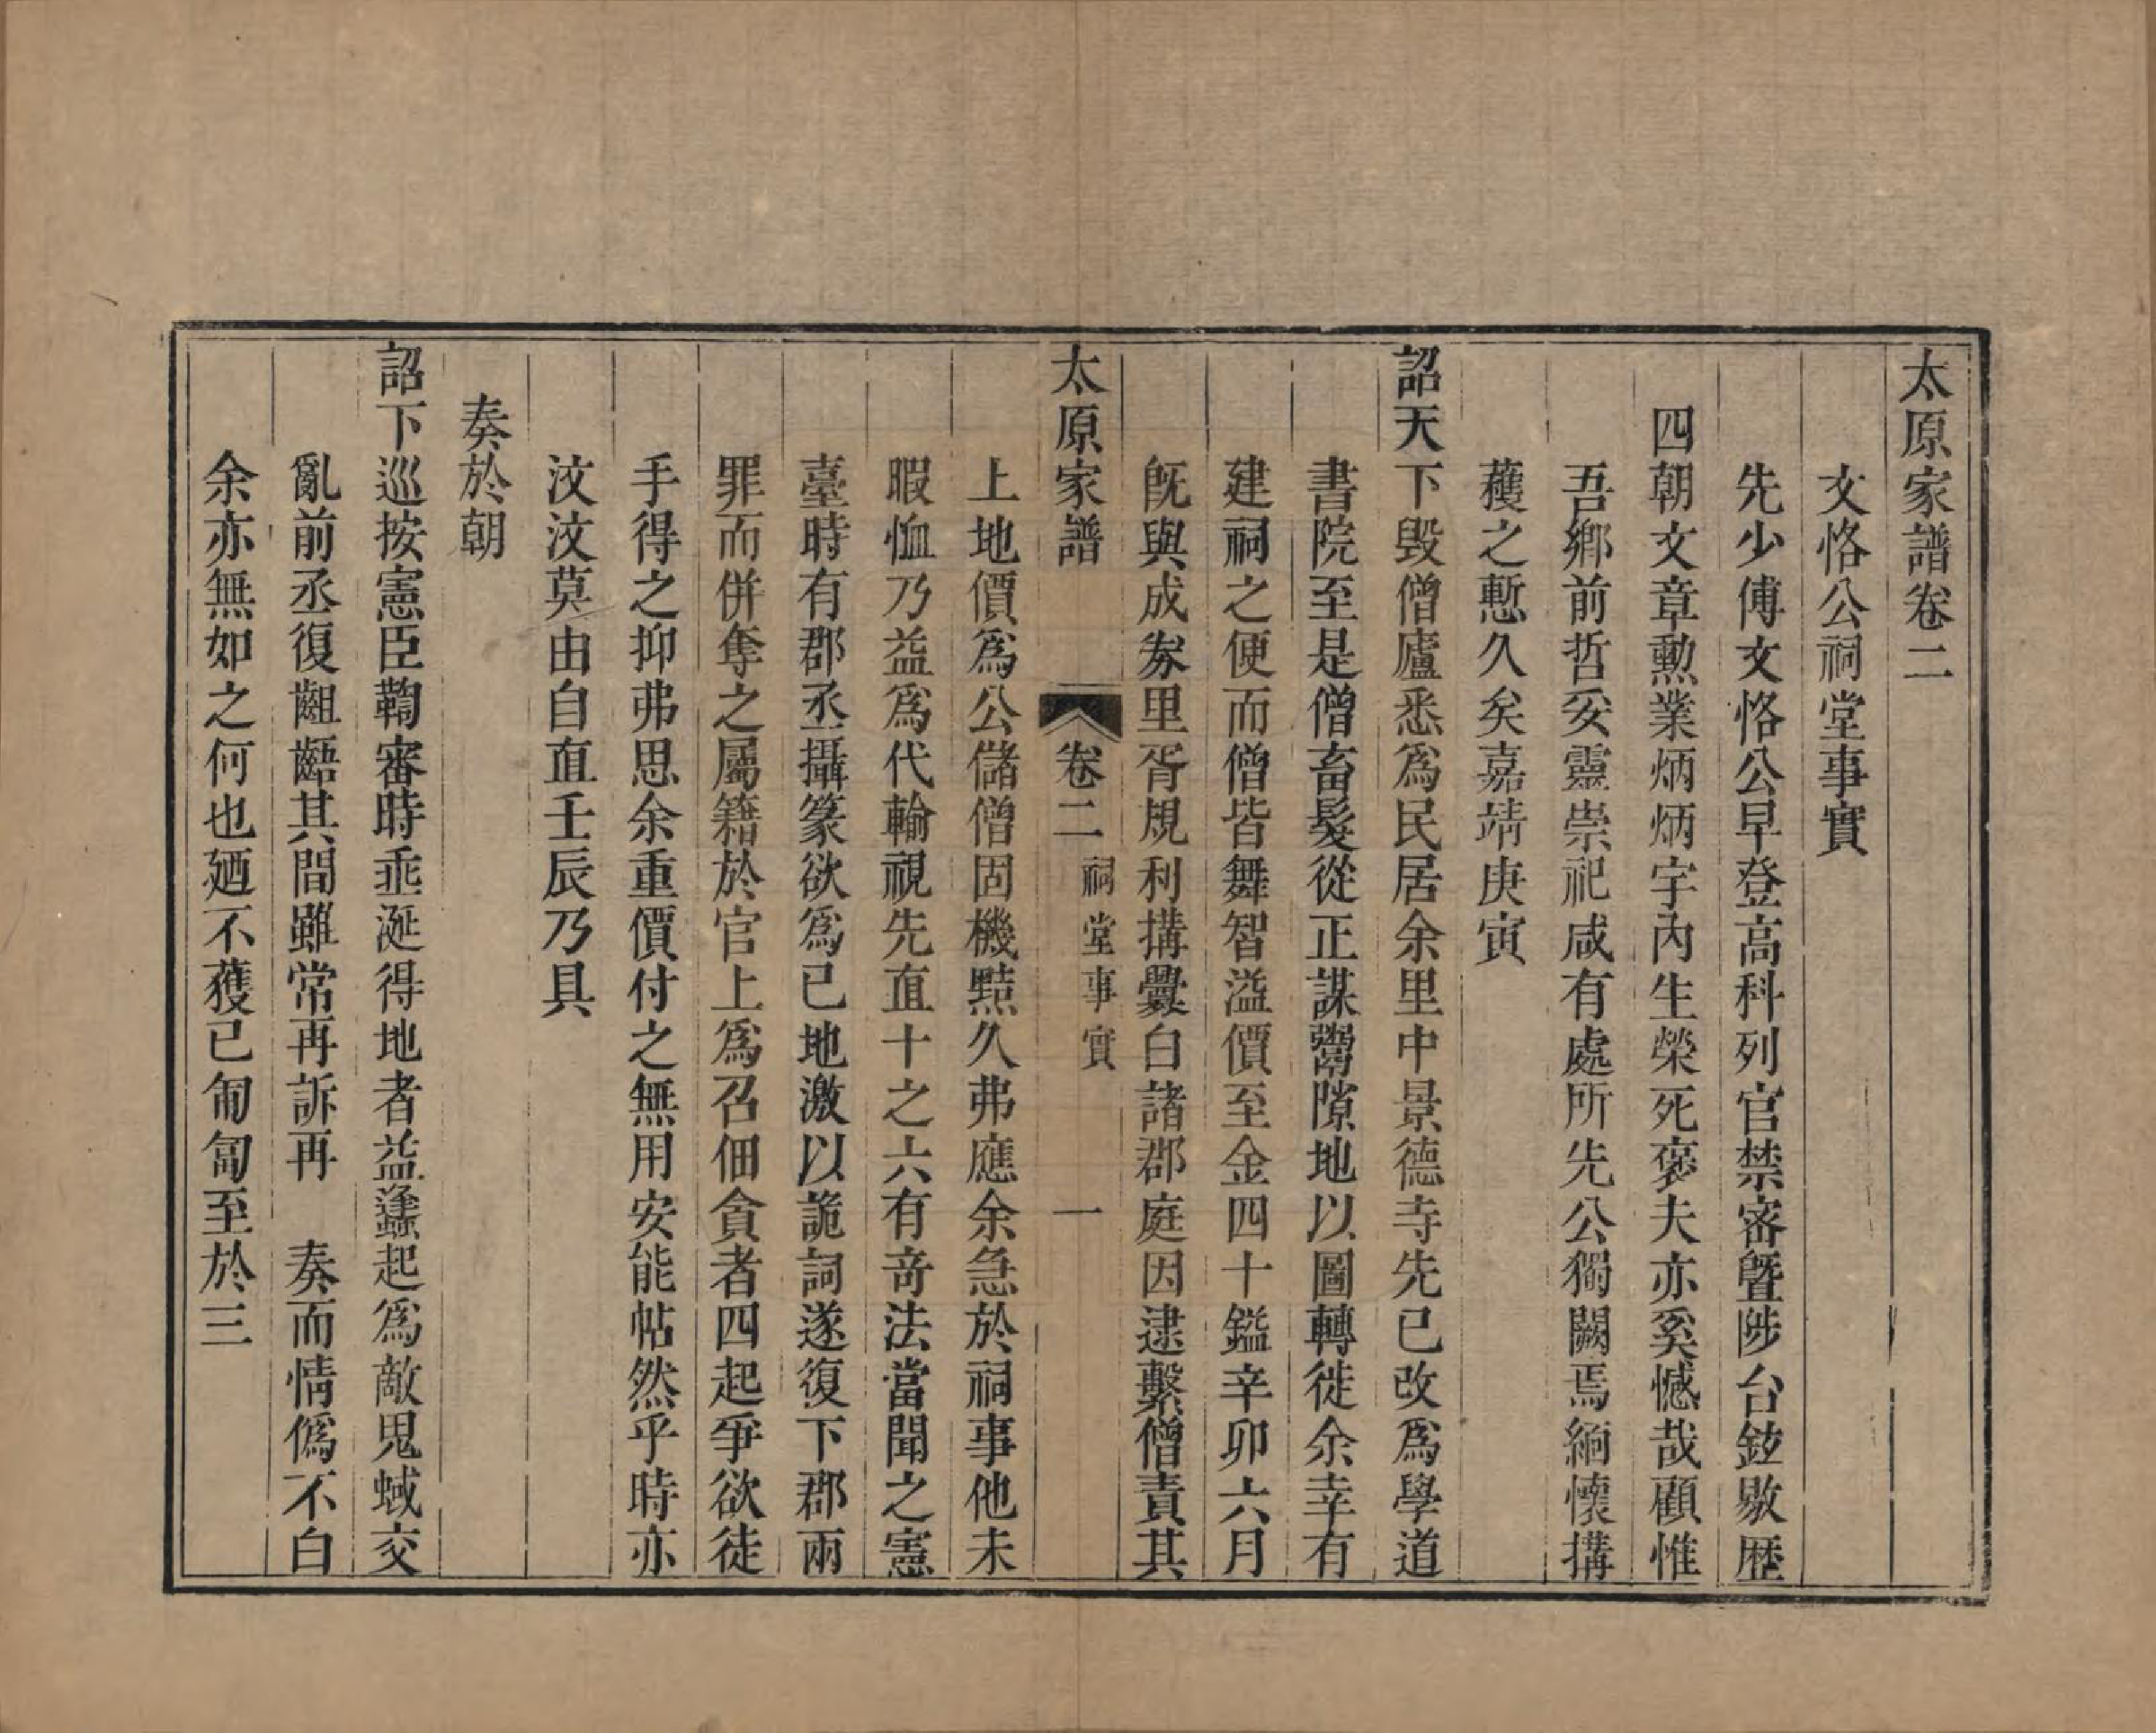 太原家譜卷二
文恪公祠堂事實
先少傅文恪公早登高科列官禁密曁陟台鉉敭歴
四朝文章勲業炳炳宇內生榮死褒夫亦奚憾哉顧惟
吾鄕前哲妥靈崇祀咸有處所先公獨闕焉緬懷搆
蒦之慙久矣嘉靖庚寅
詔天下毁僧廬悉爲民居余里中景德寺先已改爲學道
書院至是僧畜髮從正謀鬻隙地以圖轉徙余幸有
建祠之便而僧皆舞智溢價至金四十鎰辛卯六月
旣與成劵里胥規利搆釁白諸郡庭因逮繫僧責其
太原家譜 卷二 祠堂事實 一
上地價爲公儲僧固機黠久弗應余急於祠事他未
暇恤乃益爲代輸視先直十之六有奇法當聞之憲
臺時有郡丞攝篆欲爲已地激以詭詞遂復下郡兩
罪而併奪之屬籍於官上爲召佃貪者四起爭欲徒
手得之抑弗思余重價付之無用安能帖然乎時亦
汶汶莫由自直壬辰乃具
奏於朝
詔下巡按憲臣鞫審時垂涎得地者益蠭起爲敵鬼蜮交
亂前丞復齟齬其間雖常再訴再 奏而情僞不白
余亦無如之何也廼不獲已匍匐至於三